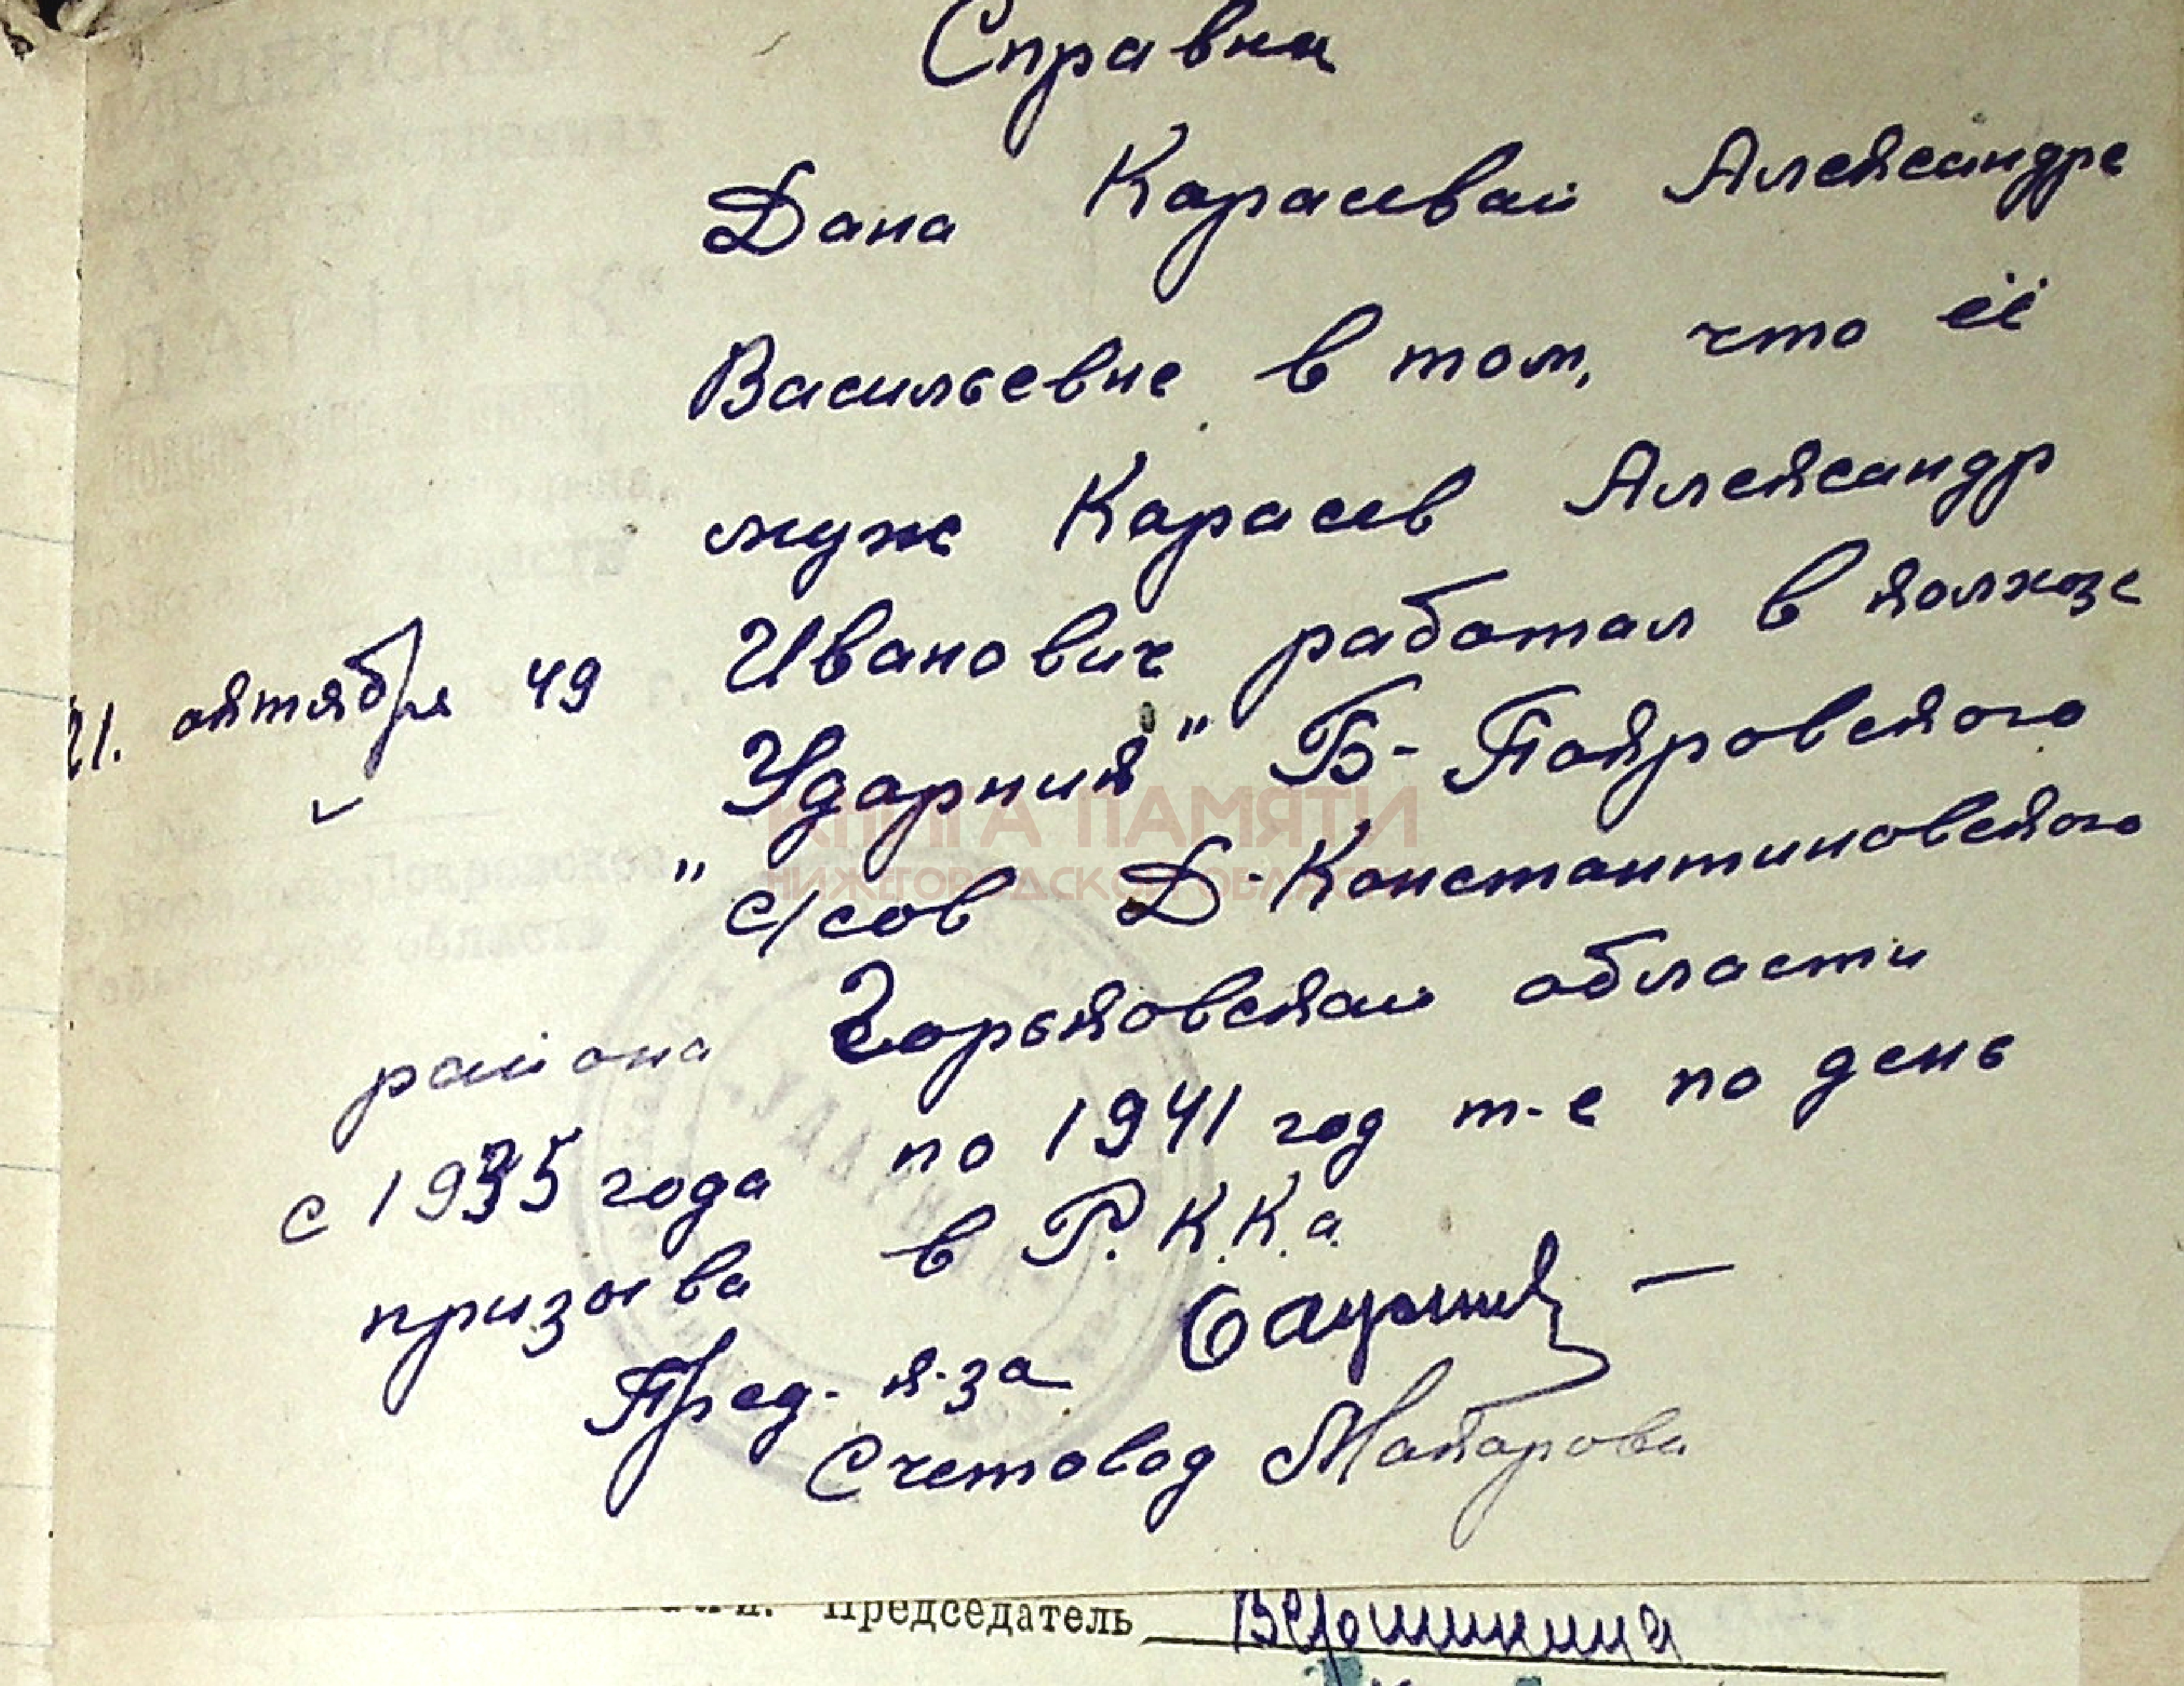 Справка
Дана Карасевай Александре
Васильевне в том, что её
муж Карасев Александр
Иванович работал в колхозе
21. октября 49
"Ударник" Б-Покровского
с/сов Д-Константиновского
района Горьковскай области
с 1935 года по 1941 год т-е по день
призыва в Р.К.К.а.
Пред. к-за
Счетовод
КНИГА ПАМЯТИ
НИЖЕГОРОДСКОЙ ОБЛАСТИ
Председатель